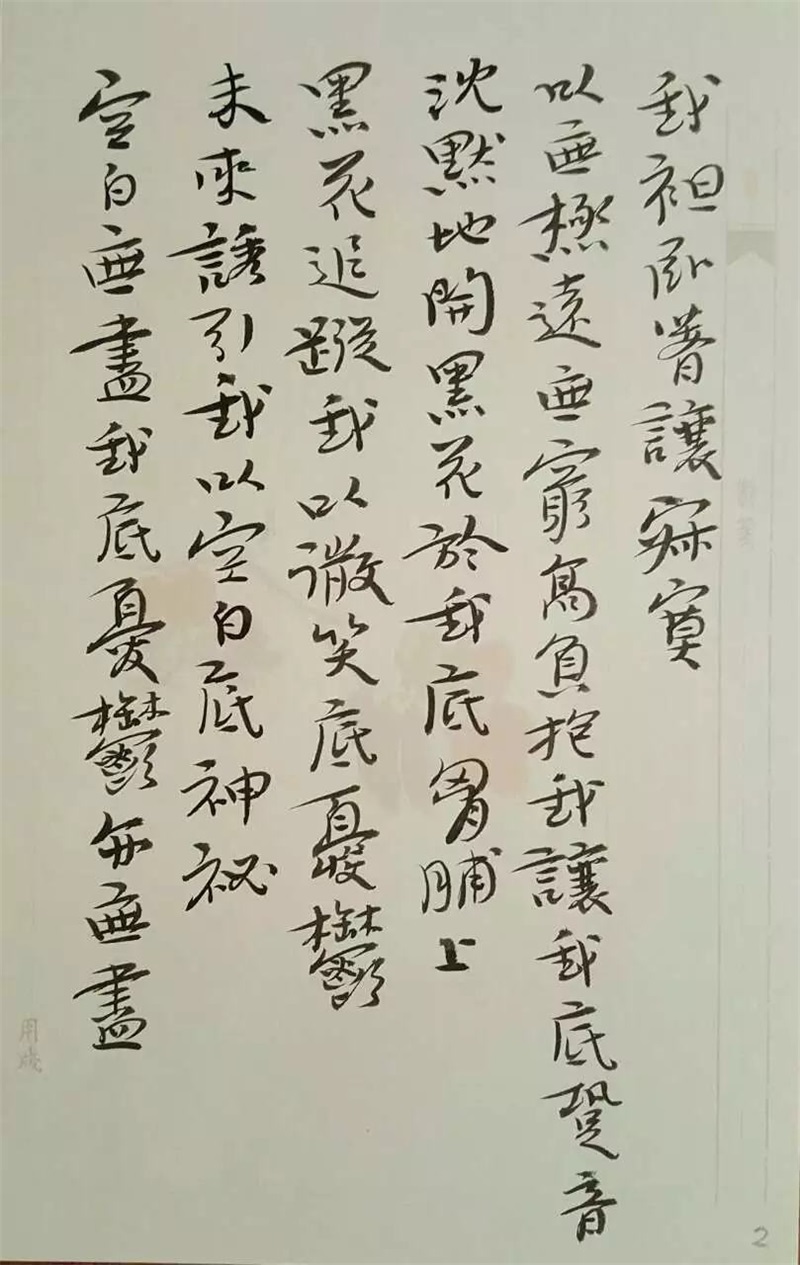 我袒卧着讓寂寞
以無極遠無窮高負抱我讓我底跫音
沈默地開黑花於我底胃脯上
黑花追蹤我以微笑底憂鬱
未來誘引我以空白底神祕
空白無盡我底憂鬱亦無盡
用箋
2